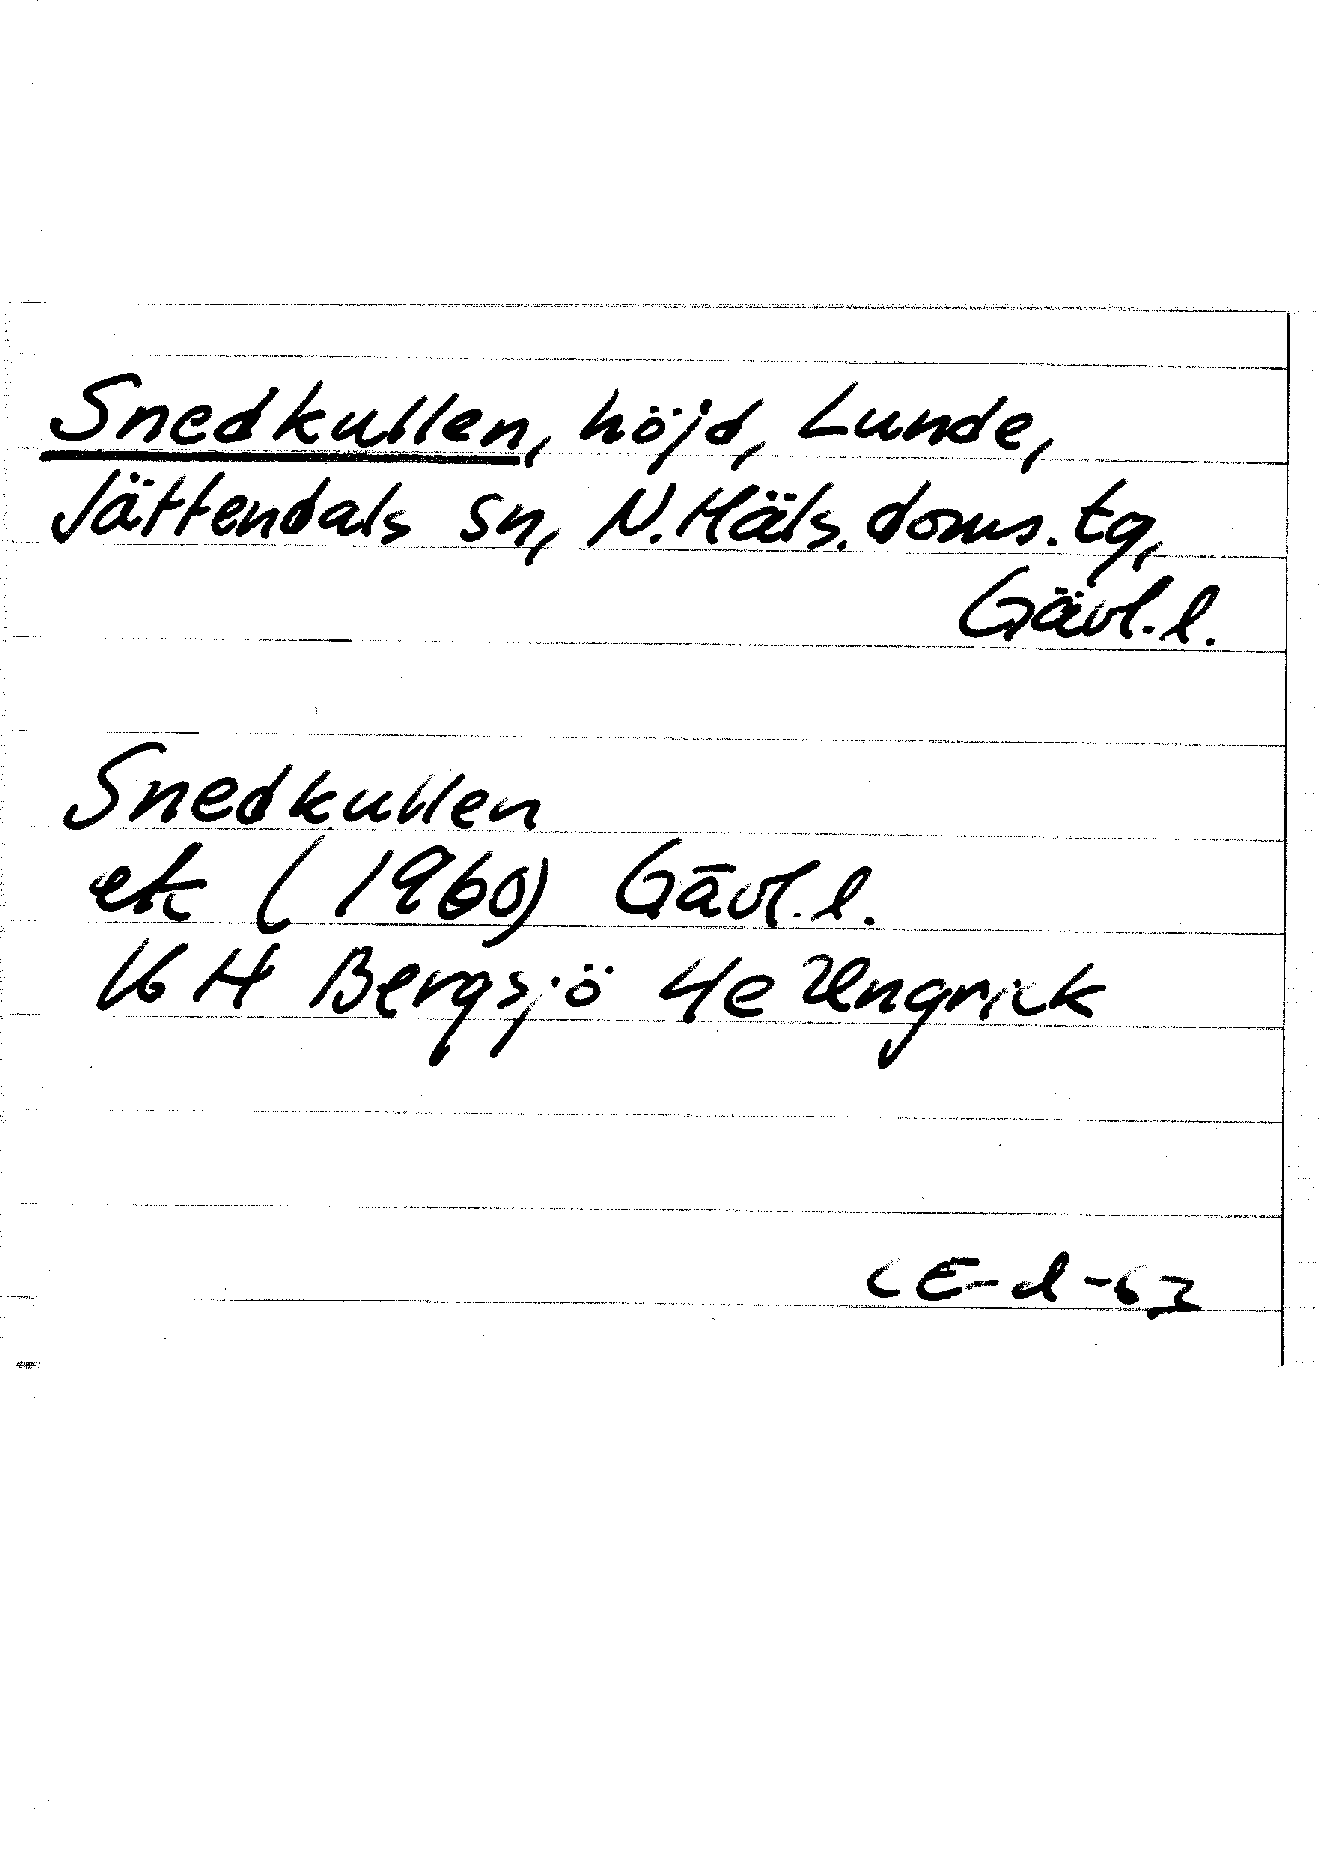 Snedkullen, höjd, Lunde,
Jättendals sn, N. Häls. doms. tg,
Gävl. l.
Snedkullen
ek (1960) Gävl. l.
16 H Bergsjö 4e Ungrick
CE-d-63